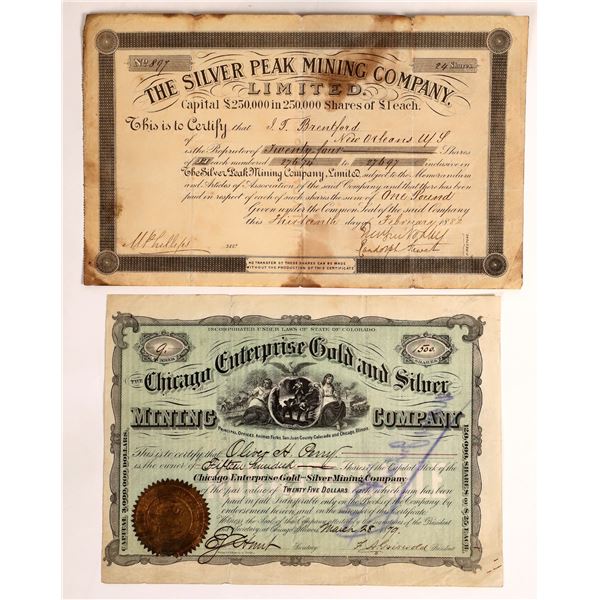 No 897
24 Shares
THE SILVER PEAK MINING COMPANY,
LIMITED.
Capital £250,000 in 250,000 Shares of £1 each.
This is to Certify that I. T. Brentford
of New Orleans U.S.
is the Proprietor of Twenty four Shares
of £1 each numbered 27674 to 27697 inclusive in
The Silver Peak Mining Company, Limited subject to the Memorandum
and Articles of Association of the said Company and that there has been
paid in respect of each of such shares the sum of One Pound
Given under the Common Seal of the said Company
this Thirteenth day of February
NO TRANSFER OF THESE SHARES CAN BE MADE
WITHOUT THE PRODUCTION OF THIS CERTIFICATE
INCORPORATED UNDER LAWS OF STATE OF COLORADO
9
SHARES
THE Chicago Enterprise Gold and Silver
MINING COMPANY
PRINCIPAL OFFICES, Animas Forks, San Juan County Colorado and Chicago, Illinois.
This is to certify that Oliver H. Perry
is the owner of Fifteen hundred Shares of the Capital Stock of the
Chicago Enterprise Gold and Silver Mining Company
of the par value of TWENTY FIVE DOLLARS
paid in full. Transferable only on the Books of the Company by
endorsement hereon and on the
Witness the Seal of the Company and the signatures of the President
and Secretary, at Chicago Illinois, March 28 79
Secretary President
CAPITAL 3,000,000 DOLLARS.
120,000, SHARES OF $25 EACH.